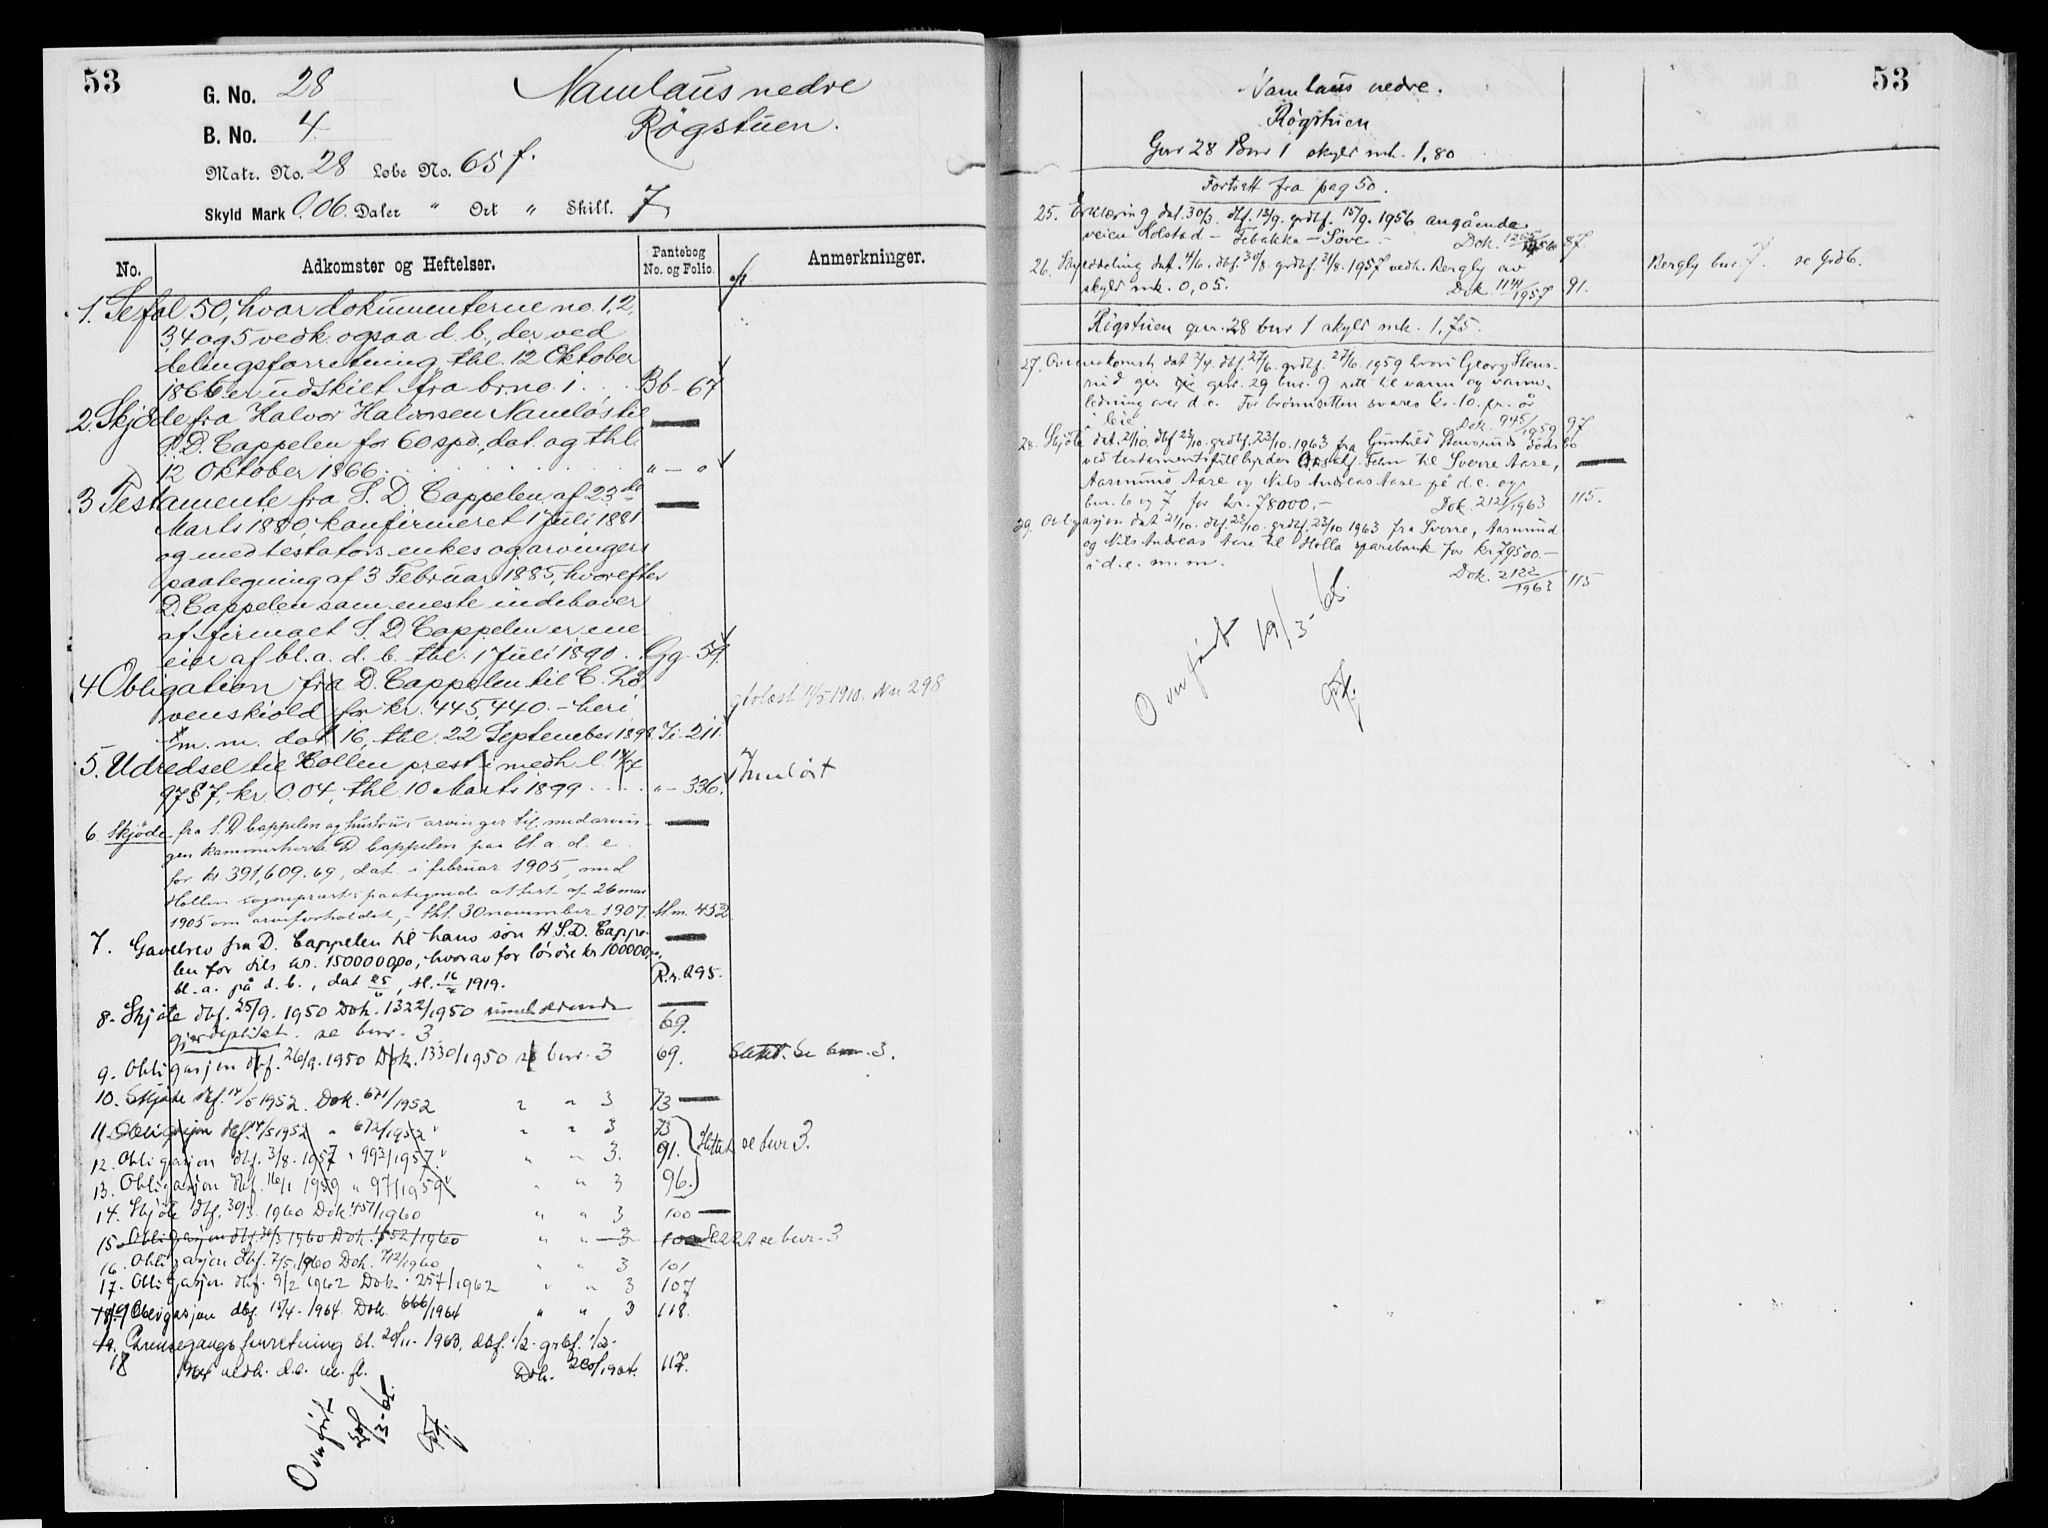 53
G. No. 28
Namlaus nedre
B. No. 4
Røgstuen.
Matr. No. 28 Løbe No. 65 f.
Skyld Mark 0.06. Daler " Ort " Skill. 7
No.
Adkomster og Heftelser.
Pantebog
No. og Folio.
Anmerkninger.
1. Se fol 50, hvor dokumenterne no. 1, 2,
3, 4 og 5 vedk. ogsaa d. b., der ved
delingsforretning, thl. 12 Oktober
1866 er udskilt fra br. no. 1. Bb - 67
2. Skjøde fra Halvor Halvorsen Namløs til
S. D. Cappelen for 60 spd., dat. og thl.
12 Oktober 1866. " - "
3 Testamente fra S. D. Cappelen af 23de
Marts 1880, konfirmeret 1 Juli 1881
og med testators enkes og arvingers
paategning af 3 Februar 1885, hvorefter
D. Cappelen som eneste indehaver
af firmaet S. D. Cappelen er ene
eier af bl. a. d. b. thl. 1 Juli 1890. Gg. 54.
4 Obligation fra D. Cappelen til C. Lø-
venskiold for kr. 445,440. - heri
m. m. dat. 16, thl. 22 September 1898. Ii. 211.
11/5 1910. 298
5. Udredsel til Hollen prest i medh. l. 14/7
97 § 7, kr. 0.04, thl. 10 Marts 1899 " - 336.
Innløst
6. Skjøde fra S. D. Cappelen og hustrus arvinger til medarvin-
gen kammerherre D. Cappelen paa bl. a. d. e.
for kr. 391,609.69, dat. i februar 1905, med
Hollen sogneprests paategnede attest af 26 mai
1905 om arveforholdet, - thl. 30 november 1907. Mm. 452
7. Gavebrev fra D. Cappelen til hans søn H. S. D. Cappe-
len for dels kr. 1500000,00, hvorav for løsøre kr 100000,
bl. a. på d. b., dat 25/6, tl. 16/7 1919. R.r. 295.
8. Skjøte dbf. 25/9. 1950 Dok. 1322/1950
se bnr. 3 69.
9. Obligasjon dbf. 26/9. 1950 Dok. 1330/1950 se bnr. 3 69. Slettet. Se bnr. 3.
10. Skjøte dbf. 14/5 1952. Dok. 671/1952 " " 3 73
11. Obligasjon dbf. 14/5 1952 " 672/1952 " " 3 73
12. Obligasjon dbf. 3/8. 1957 " 993/1957. " " 3. 91. Slettet se bnr 3.
13. Obligasjon dbf. 16/1 1959 " 97/1959 " " 3 96.
14. Skjøte dbf. 30/3. 1960 Dok 451/1960 " " 3 100
15. Obligasjon dbf. 30/3 1960 Dok. 452/1960 " " 3 100 Slettet se bnr. 3
16. Obligasjon dbf. 7/5. 1960 Dok. 712/1960 " " 3 101
17. Obligasjon dbf. 9/2 1962 Dok. 257/1962 " " 3 107
19 Obligasjon dbf. 15/4. 1964. Dok. 666/1964 " " 3 118.
18 Grensegangsforretning sl. 20/11. 1963, dbf. 1/2. grdbf. 1/2.
1964 vedk. d.e. m. fl. Dok. 200/1964. 117.
Overført
20/3-65.
53
Namlaus nedre.
Røgstuen
Gnr 28 Bnr 1 skyld mk. 1,80
Fortsatt fra pag 50.
25. Erklæring dat. 30/3. dbf. 15/9. grdbf. 15/9. 1956 angående
veien Kolstad - Febakka - Søve. Dok. 1265/1956 87.
26. Skylddeling dat. 4/6. dbf. 31/8. grdbf. 31/8. 1957 vedk. Bergly av
skyld mk. 0,05. Dok. 1141/1957 91.
Bergly bnr. 7 se Grdb.
Røgstuen gnr. 28 bnr 1 skyld mk. 1,75.
27. Overenskomst dat 2/4. dbf. 27/6. grdbf. 27/6. 1959 hvori Georg Stens-
rud gir gnr. 29 bnr. 9 rett til vann og vann-
ledning over d.e. For brønnretten svares kr. 10. pr. år
i leie. Dok. 945/1959 97
28. Skjøte dat. 21/10. dbf 23/10. grdbf. 23/10. 1963 fra Gunhild Stensruds dødsbo
ved testamentsfullbyrder Fehn til Sverre Aase,
Aasmund Aase og Nils Andreas Aase på d.e. og
bnr. 6 og 7 for kr. 78000,- Dok. 2121/1963 115.
29. Obligasjon dat 21/10. dbf. 23/10. grdbf. 23/10 1963 fra Sverre, Aasmund
og Nils Andreas Aase til Holla sparebank for kr 79500.-
i d.e. m. m. Dok. 2122/1963 115
Overført 19/3-65.